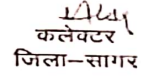 कलेक्टर
जिला-सागर